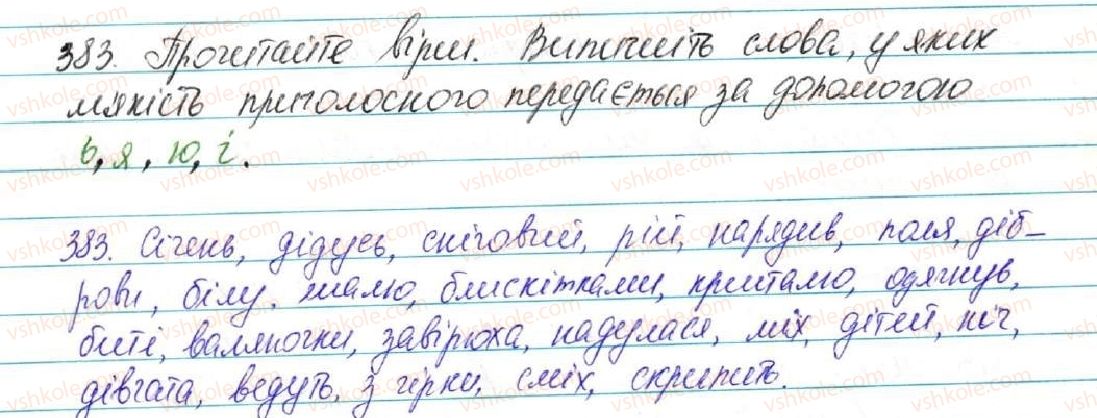 383. Прочитайте вірш. Випишіть слова, у яких
мякість приголосного передається за допомогою
ь, я, ю, і.
383. Січень, дідусь, сніговий, рій, нарядив, поля, діб-
рови, білу, шалю, блискітками, кришталю, одягнув,
биті, валяночки, завірюха, надулася, міх, дітей, ніч,
дівчата, ведуть, з гірки, сміх, скрипить.